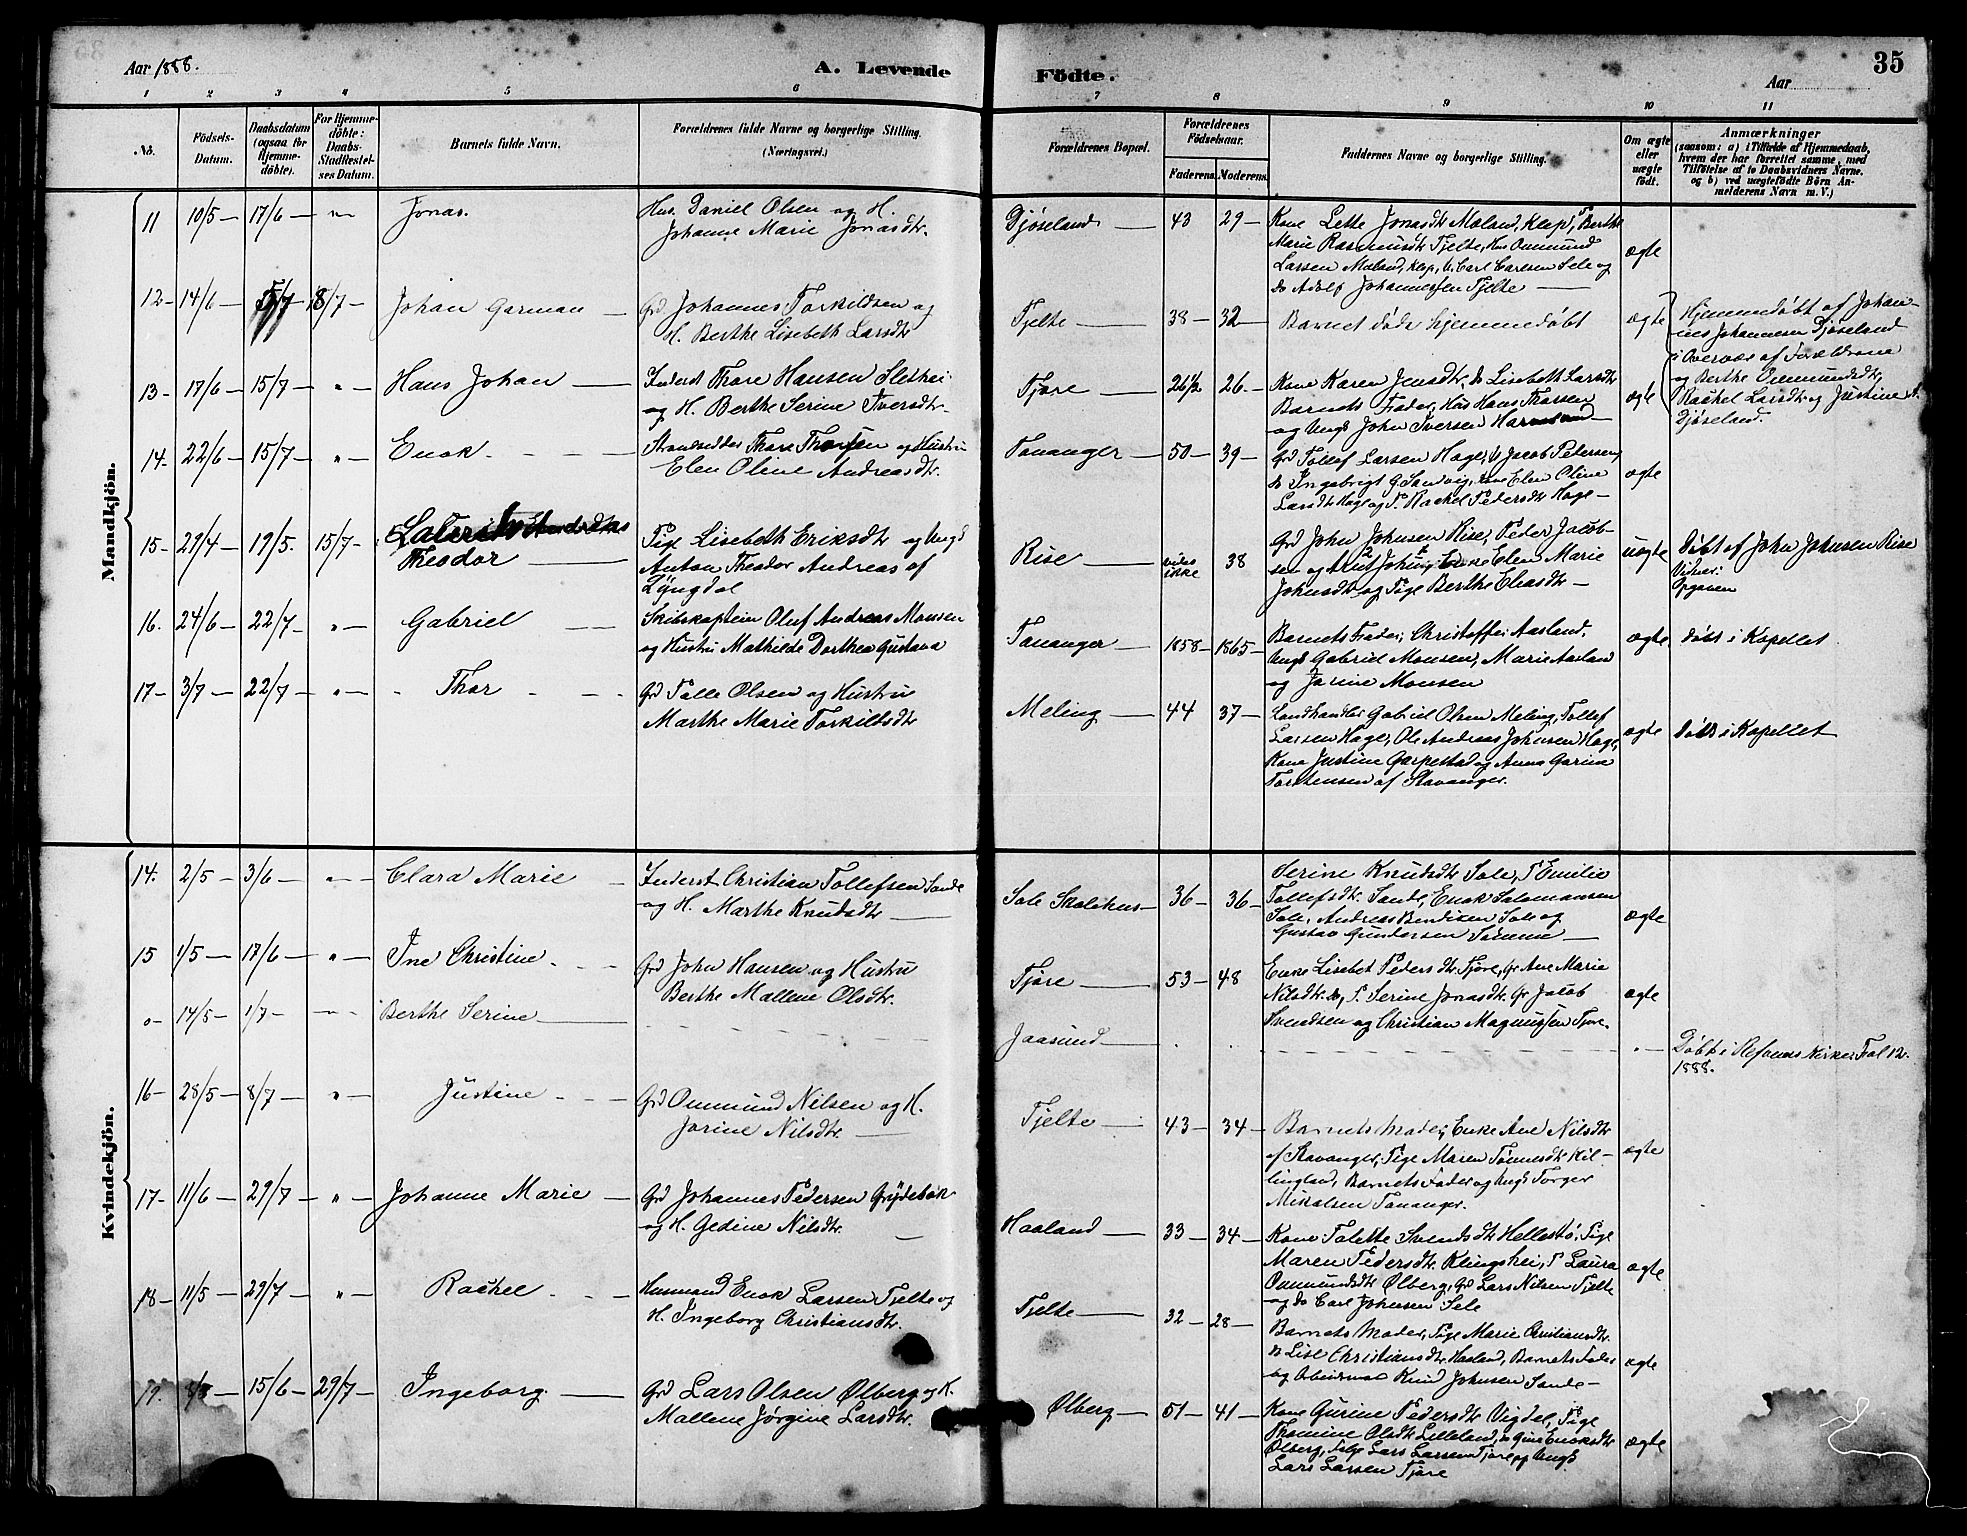 Aar 1888.
A. Levende
Födte.
Aar
35
1 2 3 4 5 6 7 8 9 10 11
No.
Födsels-Datum.
Daabsdatum (ogsaa for Hjemme-döbte).
For Hjemme-döbte: Daabs-Stadfæstel-ses Datum.
Barnets fulde Navn.
Forældrenes fulde Navne og borgerlige Stilling.
(Næringsvei.)
Forældrenes Bopæl.
Forældrenes Födselsaar.
Faderens. Moderens.
Faddernes Navne og borgerlige Stilling.
Om ægte eller uægte födt.
Anmærkninger
(saasom: a) i Tilfælde af Hjemmedaab,
hvem der har forrettet samme, med
Tilföielse af to Daabsvidners Navne.
og b) ved uægtefödte Börn An-
melderens Navn m. V.)
Mandkjön.
11 10/5 — 17/6 — Jonas.
Hus. Daniel Olsen og H.
Johanne Marie Jonasdtr.
Djøseland — 43 29 —
Kone Lette Jonasdtr Maland, Klep, P Berthe
Marie Rasmusdtr Tjelte, Hus Ommund
Larsen Maland, Klep, U. Carl Carlsen Sele og
do Adolf Johannessen Tjelte —
ægte
12 — 14/6 — 5/7 — 8/7 — Johan Garman —
Grd Johannes Torkildsen og
H. Berthe Lisebeth Larsdtr
Tjelte — 38 — 32 —
Barnet døde hjemmedøbt
ægte
Hjemmedøbt af Johan-
nes Johannesen Djøseland
i Overvær af Forældrene
og Berthe Ommundsdtr,
Rachel Larsdtr og Justine
Djøseland.
13 — 17/6 — 15/7 — " — Hans Johan —
Inderst Thore Hansen
og H. Berthe Serine Iversdtr
Tjøre — 26 1/2 26 —
Kone Karen Jensdtr, do Lisebeth Larsdtr
Barnets Fader, Hus Hans Thorsen
og Ungk John Iversen
ægte
14 — 22/6 — 15/7 — " — Enok —
Strandsidder Thore Thorsen og Hustru
Elen Oline Andreasdtr.
Tananger — 50 — 39 —
Grd Tollef Larsen Hage, U Jacob Petersen,
do Ingebrigt G Sandvig, Kone Elen Oline
Larsdtr Hage og P. Rachel Pedersdtr Hage —
ægte
15 — 29/4 — 19/5. 15/7 —
Theodor —
Pige Lisebeth Eriksdtr og Ungk
Anton Theodor Andreas af
Lyngdal
Rise — vides ikke 38
Grd John Johnsen Rise, Peder Jacob-
sen og Knut John, Enke Elen Marie
Johnsdtr og Pige Berthe Eliasdtr —
uægte
Døbt af John Johnsen Rise
Opgaven
16. 24/6 — 22/7 — " — Gabriel —
Skibskaptein Oluf Andreas Monsen
og Hustru Mathilde Dorthea Gustava
Tananger — 1858 — 1865 —
Barnets Fader, Christoffer Aasland,
Ungk Gabriel Monsen, Marie Aasland
og Jorine Monsen
ægte. Døbt i Kapellet
17 — 3/7 — 22/7 — " — Thor —
Grd Tolle Olsen og Hustru
Marthe Marie Torkildsdtr
Meling — 44 37 —
Landhandler Gabriel Olsen Meling, Tollef
Larsen Hage, Ole Andreas Johnsen Hage,
Kone Justine Garpestad og Anna Gurine
Torstensen af Stavanger.
ægte Døbt i Kapellet
Kvindekjön.
14. 2/5 — 3/6 — " — Clara Marie —
Inderst Christian Tollefsen Sande
og H. Marthe Knudsdtr —
Sole Skolehus — 36 — 36 —
Serine Knudsdtr Sole, P Emilie
Tollefsdtr. Sande, Enok Salomonsen
Sole, Andreas Bendiksen Sole og
Gustav Gundersen Sømme —
ægte
15 1/5 — 17/6 — " — Ine Christine —
Grd John Hansen og Hustru
Berthe Mallene Olsdtr.
Tjøre — 53 — 48
Enke Lisebet Peders dtr Tjøre, Gr Ane Marie
Nilsdtr do, P. Serine Jonasdtr Gr Jacob
Svendsen og Christian Magnussen Tjøre.
ægte
o — 14/5 — 1/7 — Berthe Serine —
Jaasund —
Døbt i Refsnes Kirke: Fol 12.
1888.
16 — 28/5 — 8/7 — " — Justine —
Grd Ommund Nilsen og H.
Jorine Nilsdtr. —
Tjelte — 43 — 34 —
Barnets Moder, Enke Ane Nilsdtr
af Stavanger, Pige Maren Tønnesdtr Hil-
lingland, Barnets Fader og Ungk Torger
Mikalsen Tananger.
ægte
17 — 11/6 — 29/7 — " — Johanne Marie —
Grd Johannes Pedersen Grydebæk
og H. Gedine Nilsdtr. —
Haaland — 33 — 34 —
Kone Tolette Svendsdtr Hellestø, Pige
Maren Pedersdtr. Klingshei, P Laura
Ommundsdtr Ølberg, Grd Lars Nilsen Tjelte
og do Carl Johnsen Sele
ægte
18 — 11/5 — 29/7 — " — Rachel —
Husmand Enok Larsen Tjelte og
H. Ingeborg Christiansdtr.
Tjelte — 32 — 28 —
Barnets Moder, Pige Marie Christiansdtr.
do Lise Christiansdtr Haaland, Barnets Fader
og Knud Johnsen Sande —
ægte
19. 15/6 — 29/7 — Ingeborg —
Grd Lars Olsen Ølberg og H.
Mallene Jørgine Larsdtr.
Ølberg — 51 — 41 —
Kone Gurine Pedersdtr Vigdel, Pige
Thomine Olsdtr Lilleland, do Gine Enoksdtr
Ølberg, Lars Larsen Tjore og Ungk
Lars Larsen Tjøre
ægte